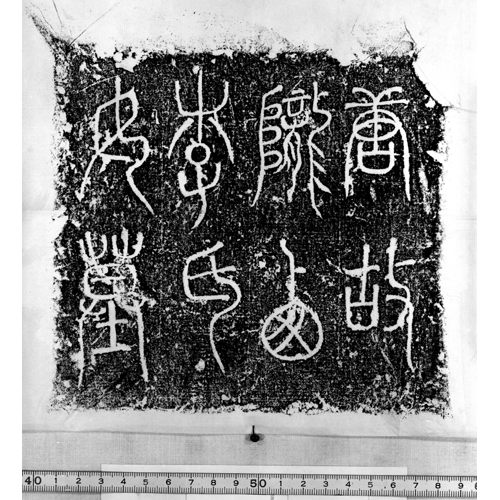 唐故
隴西
李氏
女墓
40 1 2 3 4 5 6 7 8 9 50 1 2 3 4 5 6 7 8 9